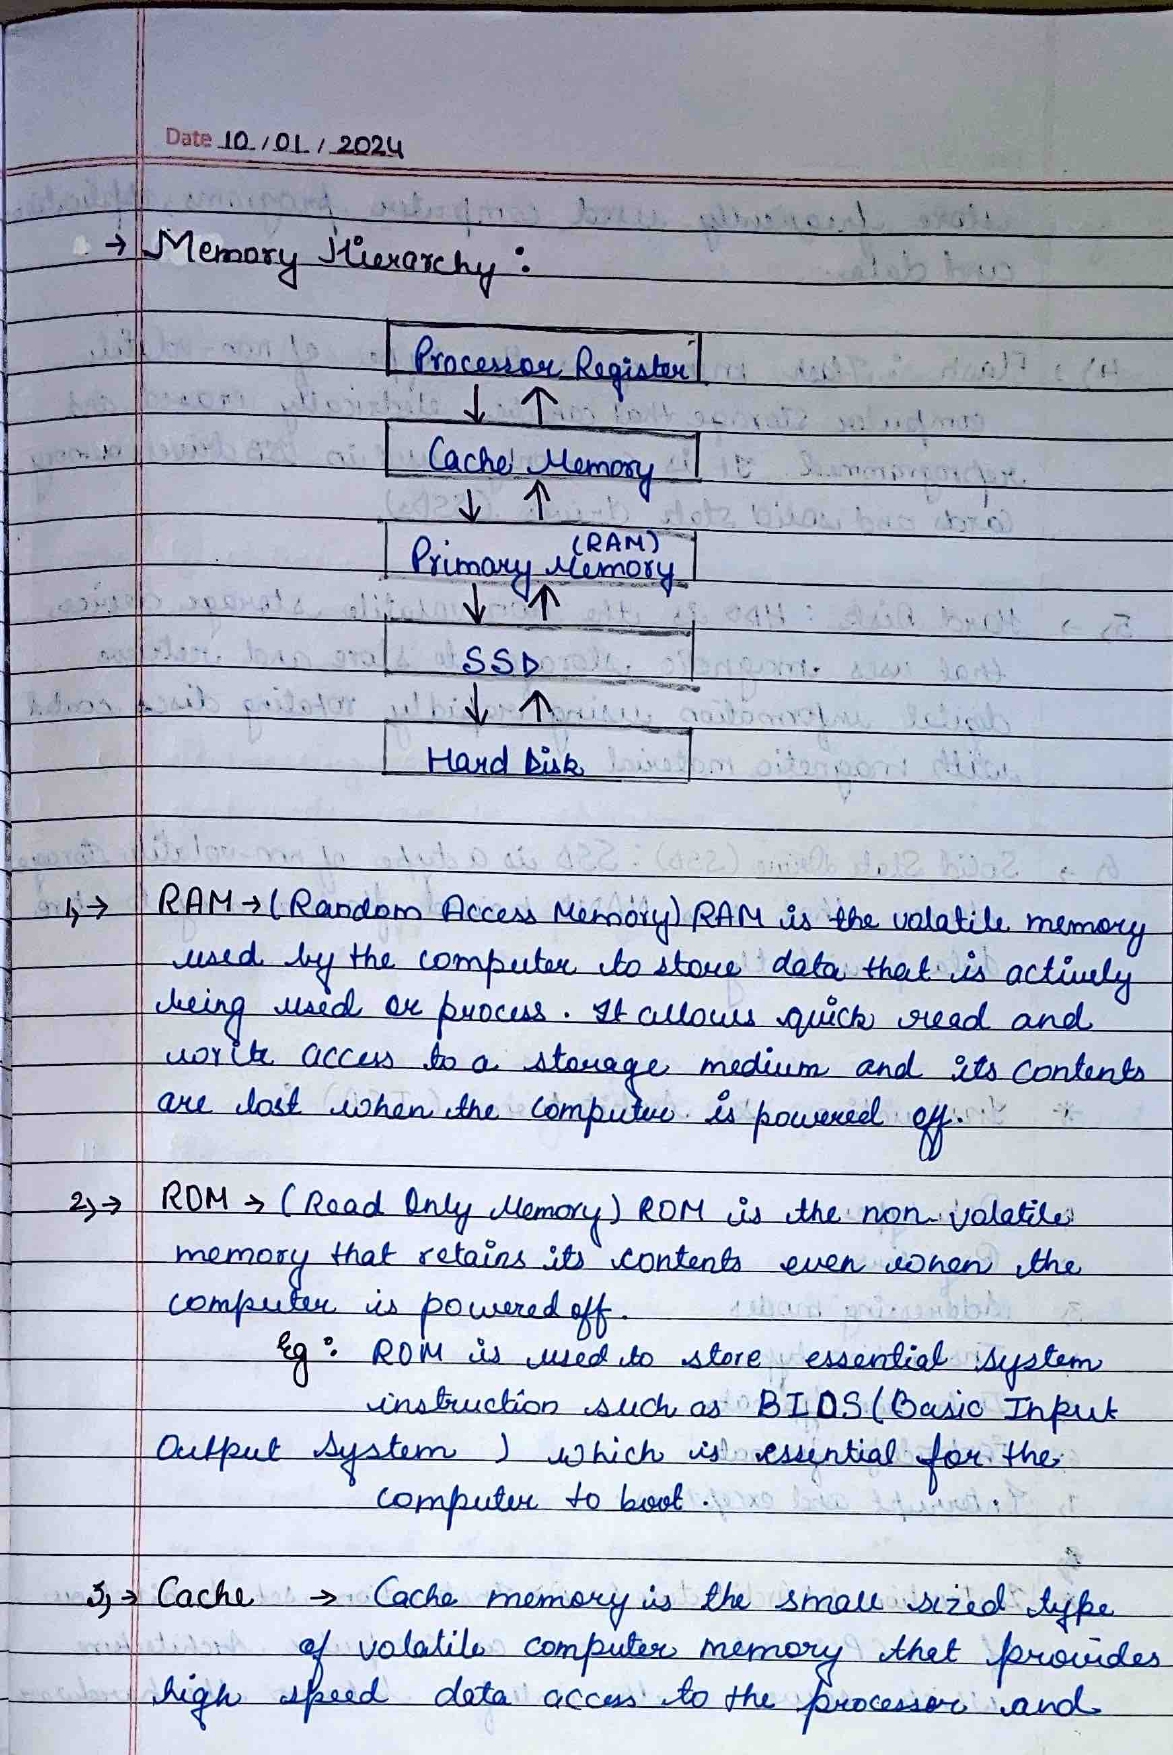 Date 10/01/2024
→ Memory Hierarchy :
Processor Register
↓ ↑
Cache Memory
↓ ↑
(RAM)
Primary Memory
↓ ↑
SSD
↓ ↑
Hard Disk
1) → RAM → (Random Access Memory) RAM is the volatile memory
used by the computer to store data that is actively
being used or process. It allows quick read and
write access to a storage medium and its contents
are lost when the computer is powered off.
2) → ROM → (Read Only Memory) ROM is the non-volatile
memory that retains its contents even when the
computer is powered off.
Eg : ROM is used to store essential system
instruction such as BIOS (Basic Input
Output System ) which is essential for the
computer to boot .
3) → Cache → Cache memory is the small sized type
of volatile computer memory that provides
high speed data access to the processor and